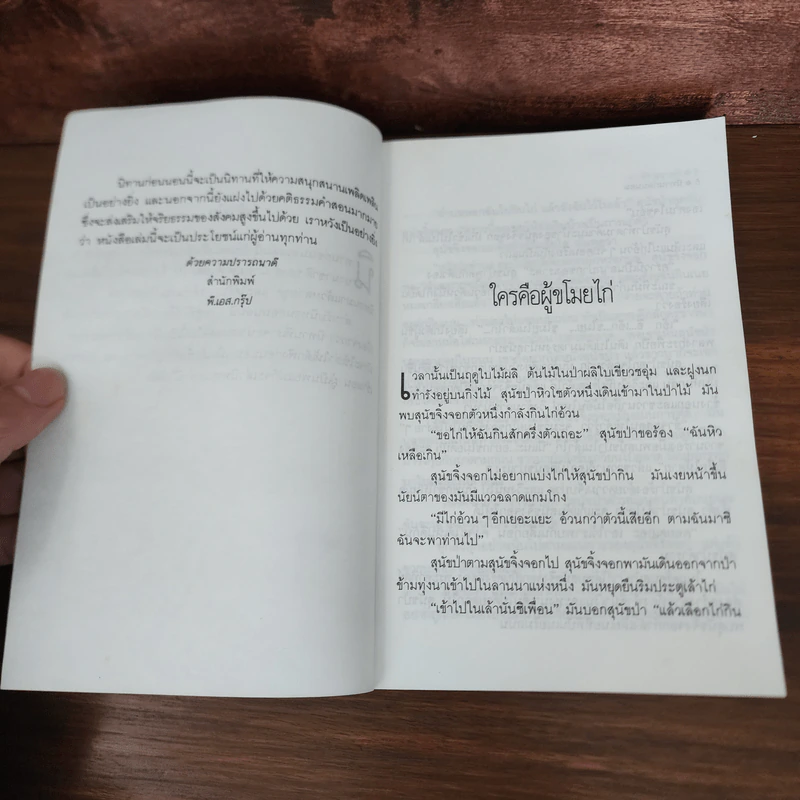 นิทานก่อนนอนนี้จะเป็นนิทานที่ให้ความสนุกสนานเพลิดเพลิน
เป็นอย่างยิ่ง และนอกจากนี้ยังแฝงไปด้วยคติธรรมคำสอนมากมาย
ซึ่งจะส่งเสริมให้จริยธรรมของสังคมสูงขึ้นไปด้วย เราหวังเป็นอย่างยิ่ง
ว่า หนังสือเล่มนี้จะเป็นประโยชน์แก่ผู้อ่านทุกท่าน
ด้วยความปรารถนาดี
สำนักพิมพ์
พี.เอส.กรุ๊ป
ใครคือผู้ขโมยไก่
เวลานั้นเป็นฤดูใบไม้ผลิ ต้นไม้ในป่าผลิใบเขียวชอุ่ม และฝูงนก
ทำรังอยู่บนกิ่งไม้ สุนัขป่าหิวโซตัวหนึ่งเดินเข้ามาในป่าไม้ มัน
พบสุนัขจิ้งจอกตัวหนึ่งกำลังกินไก่อ้วน
“ขอไก่ให้ฉันกินสักครึ่งตัวเถอะ” สุนัขป่าขอร้อง “ฉันหิว
เหลือเกิน”
สุนัขจิ้งจอกไม่อยากแบ่งไก่ให้สุนัขป่ากิน มันเงยหน้าขึ้น
นัยน์ตาของมันมีแววฉลาดแกมโกง
“มีไก่อ้วน ๆ อีกเยอะแยะ อ้วนกว่าตัวนี้เสียอีก ตามฉันมาซิ
ฉันจะพาท่านไป”
สุนัขป่าตามสุนัขจิ้งจอกไป สุนัขจิ้งจอกพามันเดินออกจากป่า
ข้ามทุ่งนาเข้าไปในลานนาแห่งหนึ่ง มันหยุดยืนริมประตูเล้าไก่
“เข้าไปในเล้านั่นซิเพื่อน” มันบอกสุนัขป่า “แล้วเลือกไก่กิน